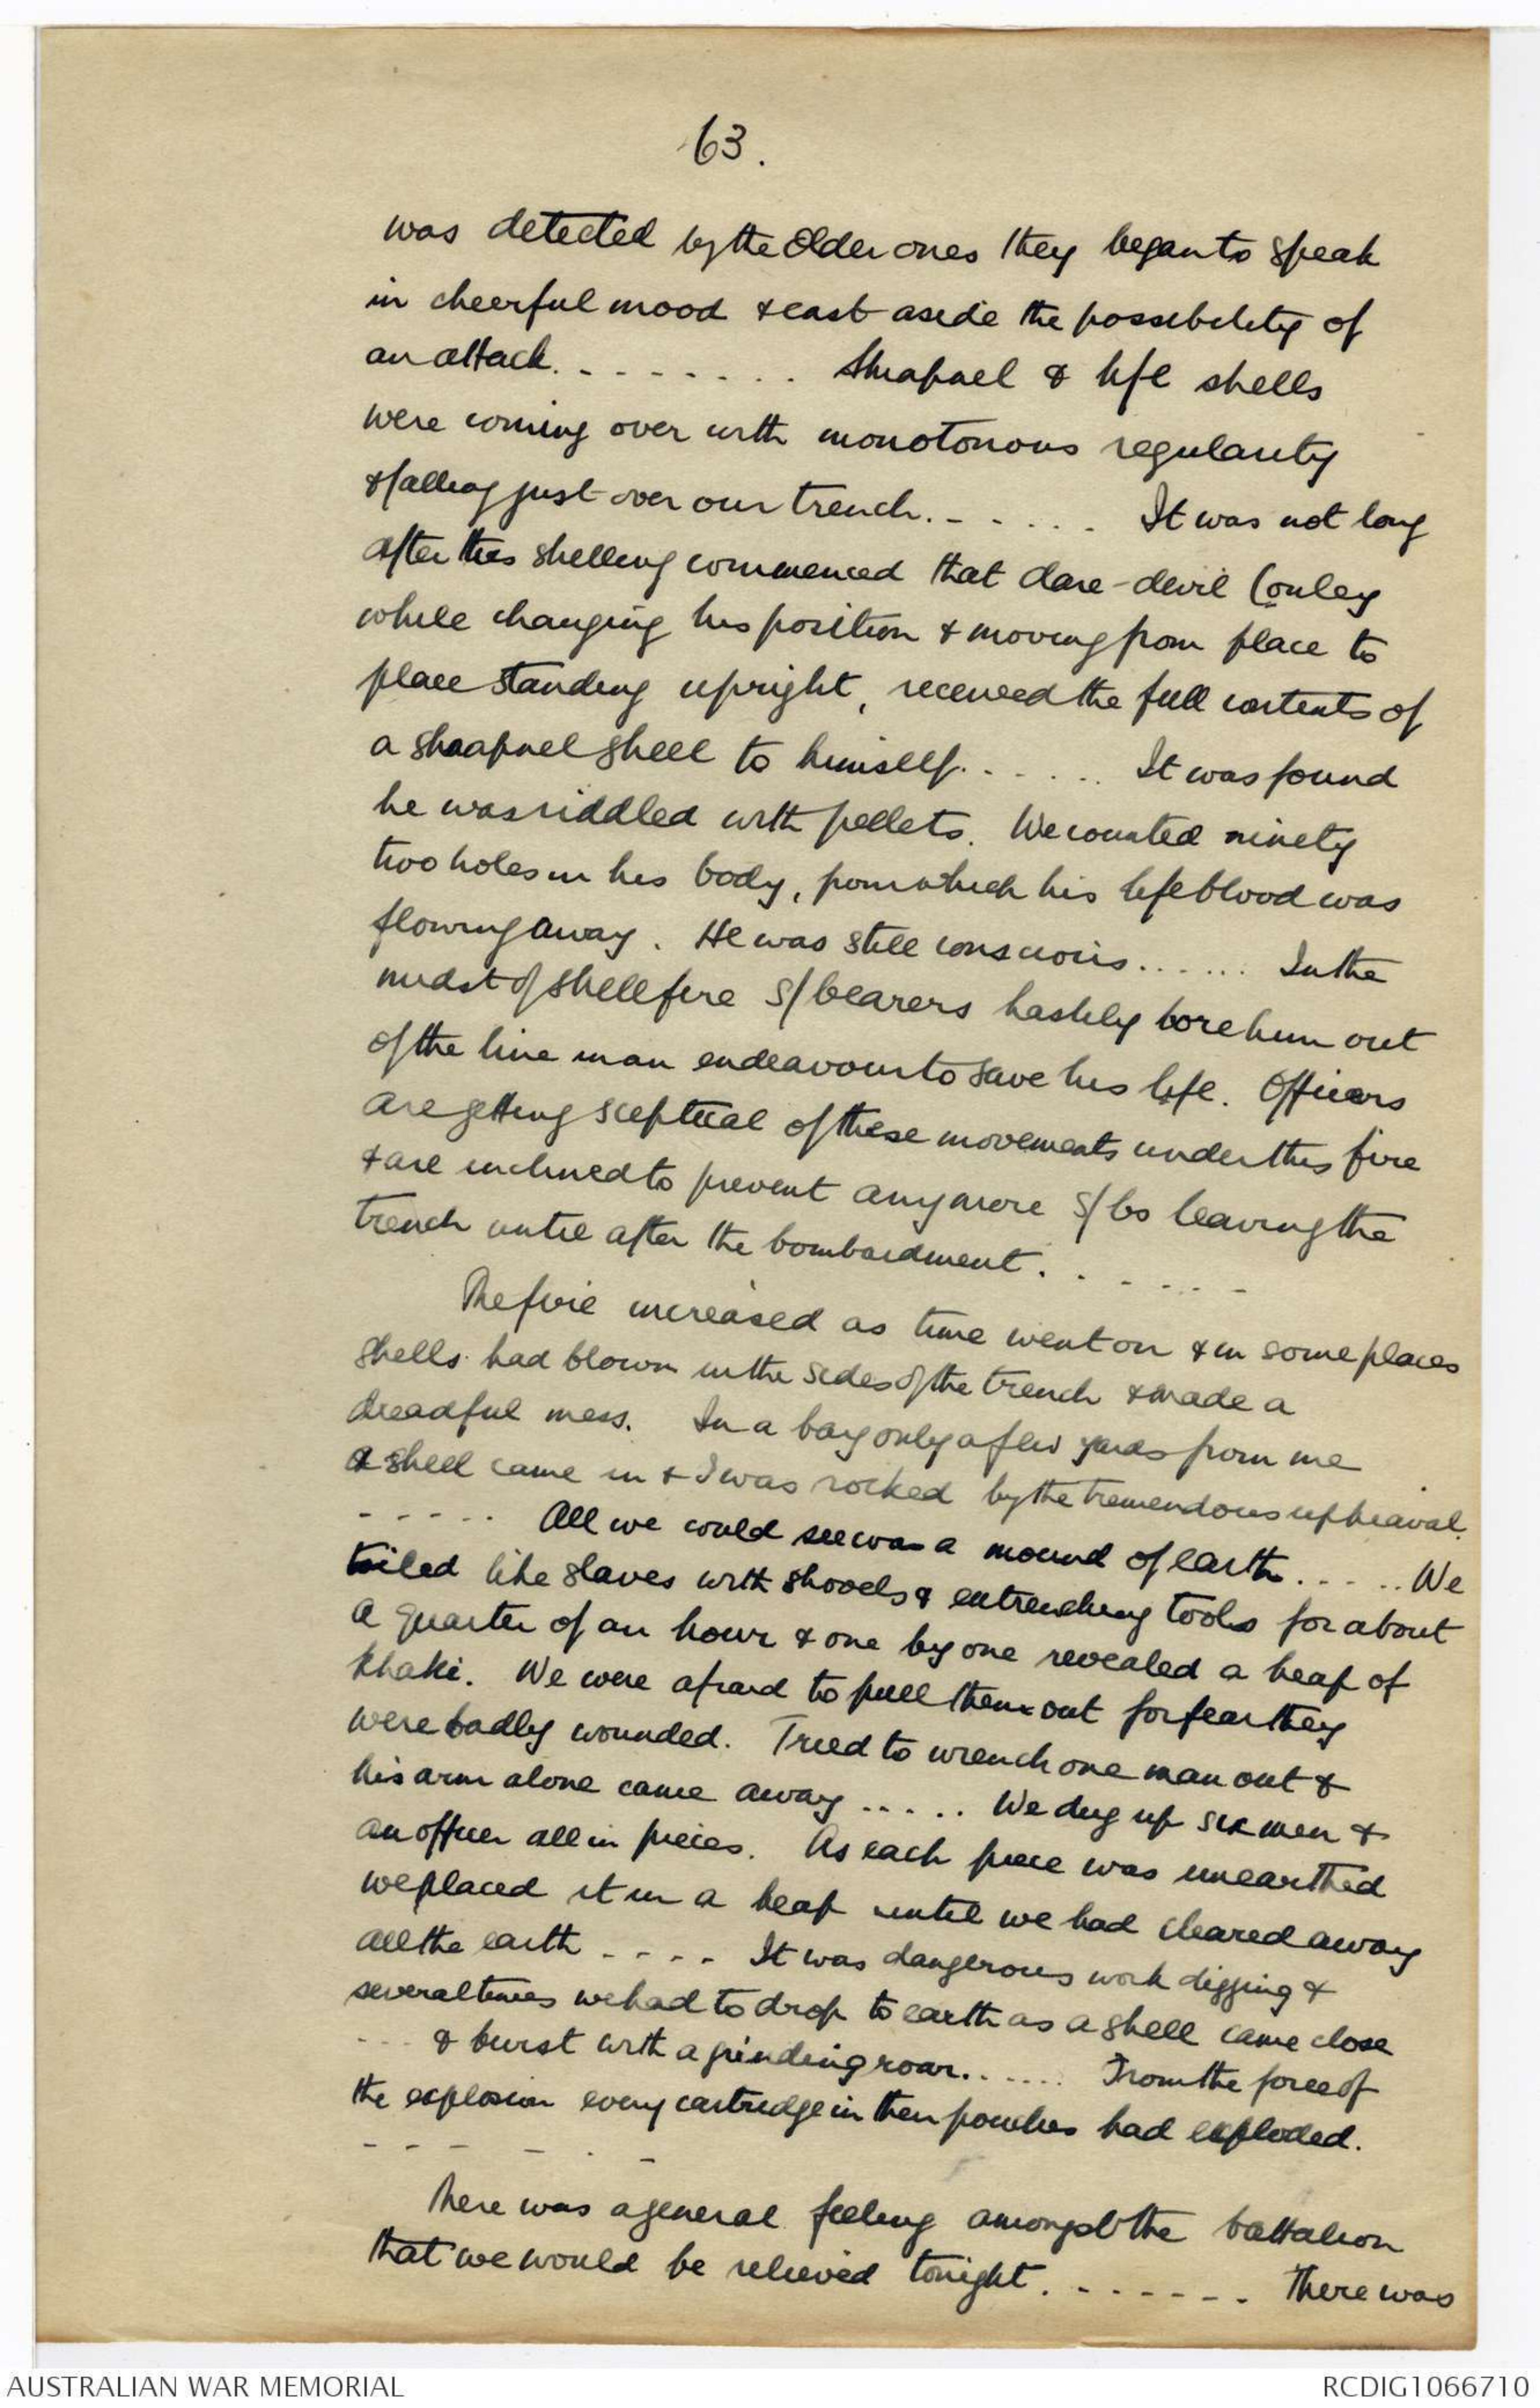 63.
was detected by the older ones they began to speak
in cheerful mood & cast aside the possibility of
an attack. . . . . . . . . Shrapnel & h/e shells
were coming over with monotonous regularity
& falling just over our trench. . . . . . . It was not long
after this shelling commenced that dare-devil Conley
while changing his position & moving from place to
place standing upright, received the full contents of
a shrapnel shell to himself. . . . . . It was found
he was riddled with pellets. We counted ninety
two holes in his body, from which his lifeblood was
flowing away. He was still conscious. . . . . . In the
midst of shellfire S/bearers hastily bore him out
of the line in an endeavour to save his life. Officers
are getting sceptical of these movements under this fire
& are inclined to prevent anymore S/bs leaving the
trench until after the bombardment. . . . . . .
The fire increased as time went on & in some places
shells had blown in the sides of the trench & made a
dreadful mess. In a bay only a few yards from me
a shell came in & I was rocked by the tremendous upheaval.
. . . . . All we could see was a mound of earth. . . . . We
toiled like slaves with shovels & entrenching tools for about
a quarter of an hour & one by one revealed a heap of
khaki. We were afraid to pull them out for fear they
were badly wounded. Tried to wrench one man out &
his arm alone came away . . . . . We dug up six men &
an officer all in pieces. As each piece was unearthed
we placed it in a heap until we had cleared away
all the earth . . . . It was dangerous work digging &
several times we had to drop to earth as a shell came close
. . . & burst with a grinding roar. . . . . . From the force of
the explosion every cartridge in their pouches had exploded.
- - - - - -
There was a general feeling amongst the battalion
that we would be relieved tonight. . . . . . . . There was
AUSTRALIAN WAR MEMORIAL
RCDIG1066710